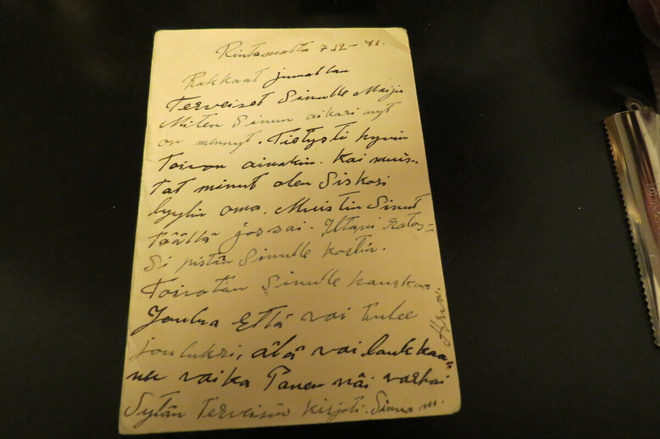 Rintamalta 7.12-41.
Rakkaat jumallan
Terveiset Sinulle Maiju
Miten Sinun aikasi nyt
on mennyt. Tietysti hyvin
Toivon ainakin. Kai muis-
tat minut olen Siskosi
Lyylin oma. Muistin Sinut
täältä jossai. Iltani ratos=
Si pistän Sinulle kortin.
Toivotan Sinulle hauskaa
Joulua Että vai tulee
jouluksi, älä vai laukkaa
vaika Panen näi varhai
Sytän Terveisin kirjoti. Sinna